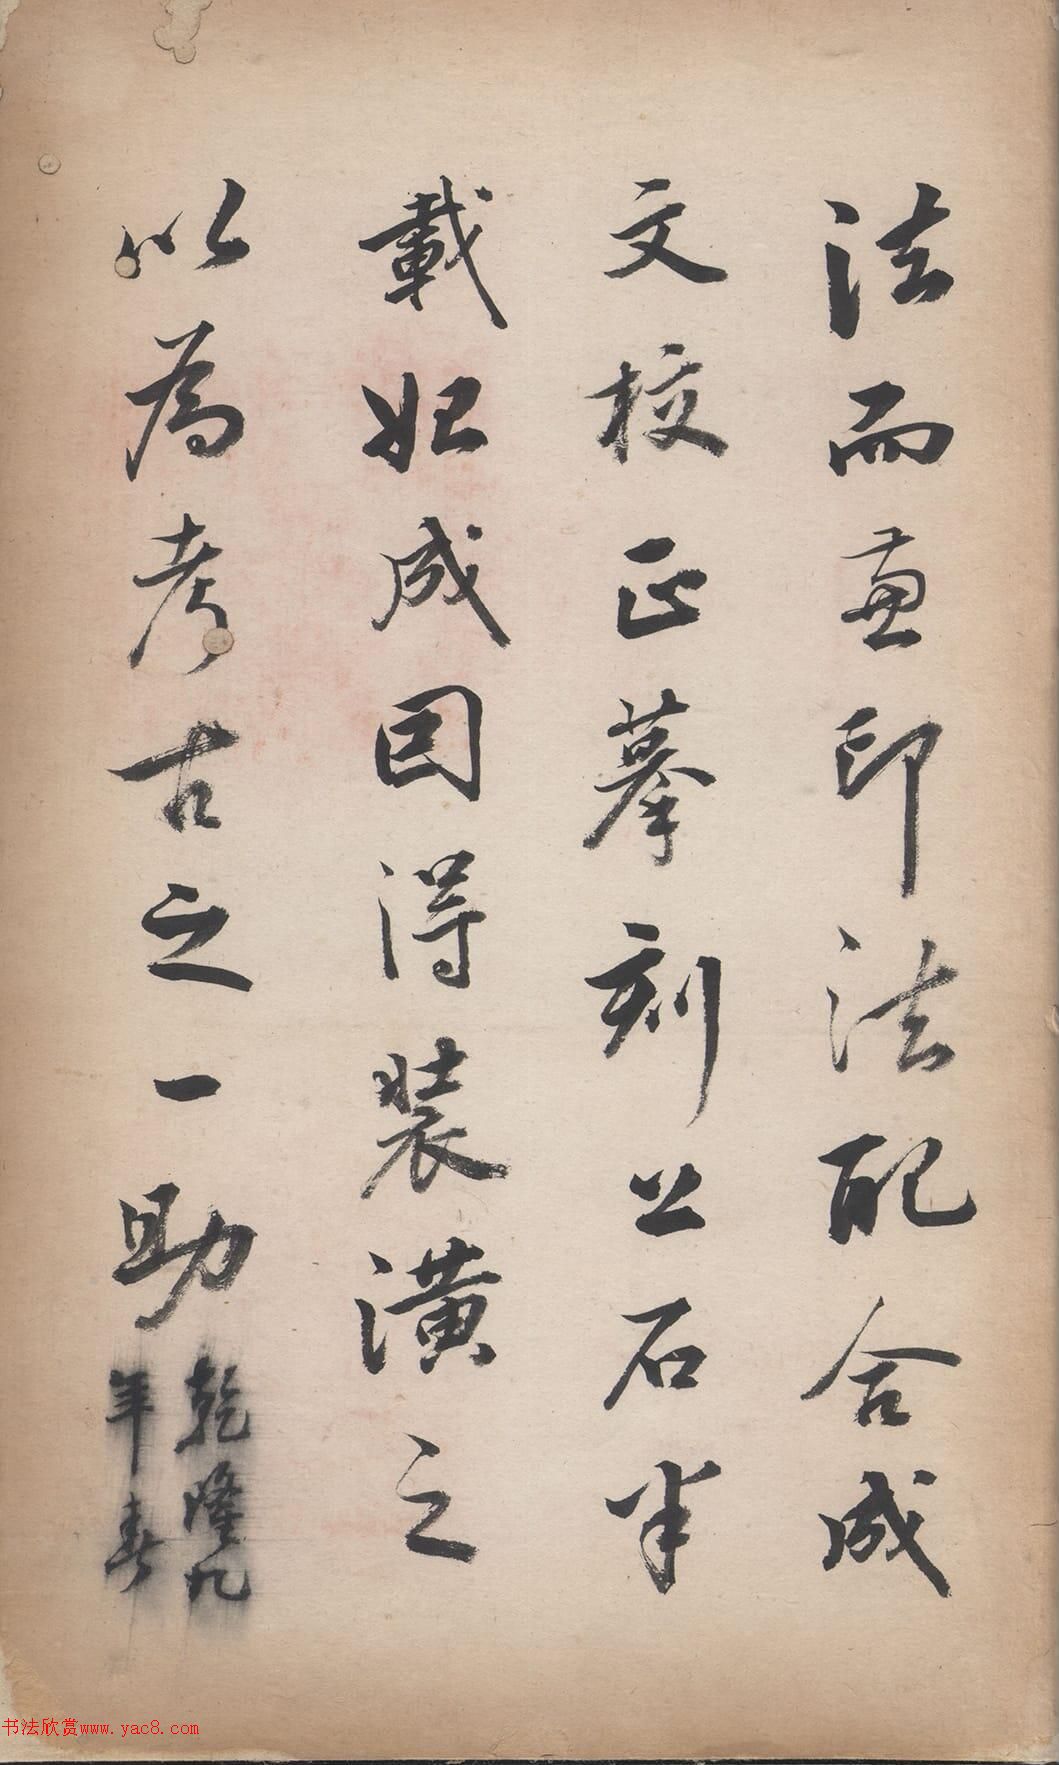 法而兼印法配合成
文校正摹刻上石半
載始成因得装潢之
以為考古之一助
乾隆九
年春
书法欣赏www.yac8.com